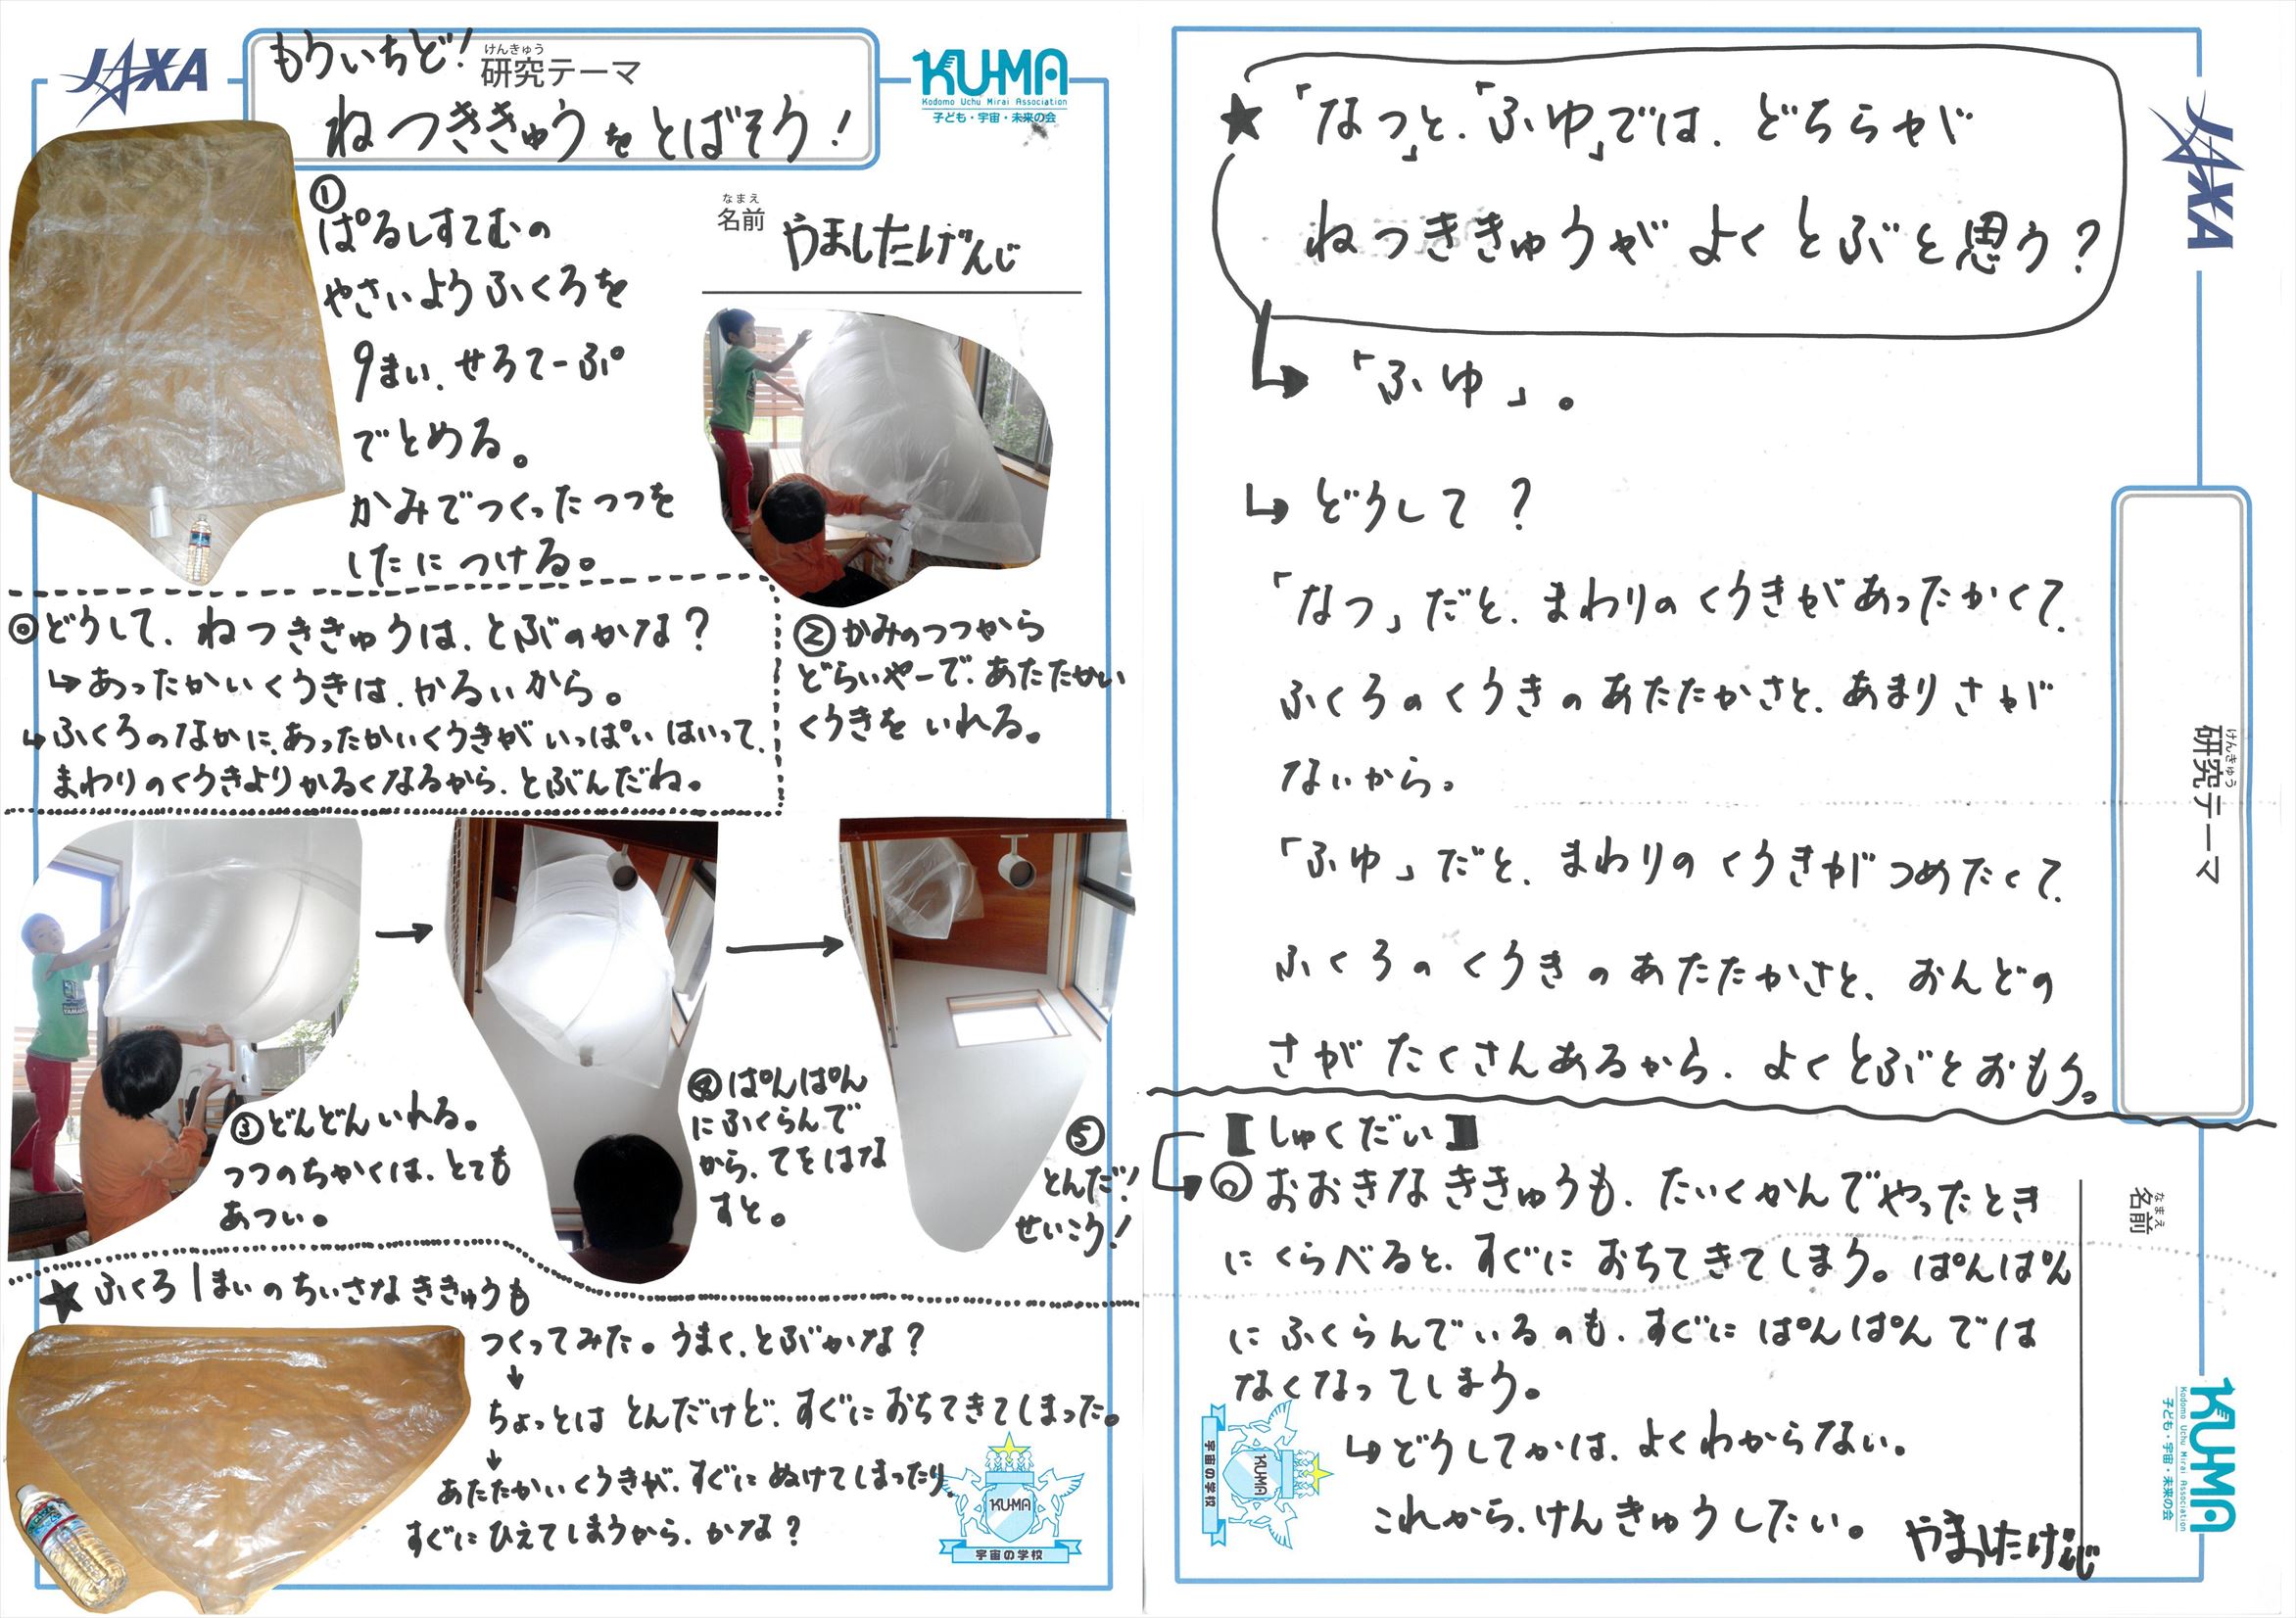 JAXA
もういちど!
けんきゅう
研究テーマ
ねつききゅうをとばそう!
KU-MA
Kodomo Uchu Mirai Association
子ども・宇宙・未来の会
なまえ
名前
やましたげんじ
①
ぱるしすてむの
やさいようふくろを
9まい、せろてーぷ
でとめる。
かみでつくったつつを
したにつける。
◎どうして、ねつききゅうは、とぶのかな?
↳あったかいくうきは、かるいから。
↳ふくろのなかに、あったかいくうきがいっぱいはいって、
まわりのくうきよりかるくなるから、とぶんだね。
②かみのつつから
どらいやーで、あたたかい
くうきをいれる。
③どんどんいれる。
つつのちかくは、とても
あつい。
④ぱんぱん
にふくらんで
から、てをはな
すと。
⑤
とんだ!
せいこう!
★ふくろ1まいのちいさなききゅうも
つくってみた。うまく、とぶかな?
↓
ちょっとはとんだけど、すぐにおちてきてしまった。
↓
あたたかいくうきが、すぐにぬけてしまったり、
すぐにひえてしまうから、かな?
KU-MA
宇宙の学校
★「なつ」と、「ふゆ」では、どちらが
ねつききゅうがよくとぶと思う?
↳「ふゆ」。
↳どうして?
「なつ」だと、まわりのくうきがあったかくて、
ふくろのくうきのあたたかさと、あまりさが
ないから。
「ふゆ」だと、まわりのくうきがつめたくて、
ふくろのくうきのあたたかさと、おんどの
さがたくさんあるから、よくとぶとおもう。
【しゅくだい】
◎おおきなききゅうも、たいくかんでやったとき
にくらべると、すぐにおちてきてしまう。ぱんぱん
にふくらんでいるのも、すぐにぱんぱんでは
なくなってしまう。
↳どうしてかは、よくわからない。
これから、けんきゅうしたい。
やましたげんじ
JAXA
けんきゅう
研究テーマ
なまえ
名前
KU-MA
Kodomo Uchu Mirai Association
子ども・宇宙・未来の会
KU-MA
宇宙の学校